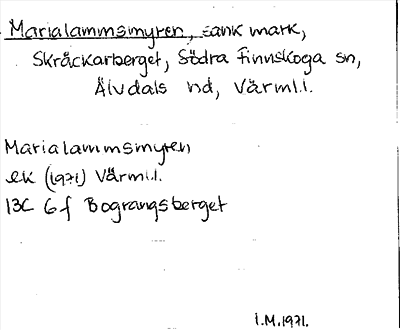 Marialammsmyren, sank mark,
Skråckarberget, Södra Finnskoga sn,
Älvdals hd, Värml.l.
Marialammsmyren
ek (1971) Värml.l.
13C 6f Bograngsberget
I.M.1971.